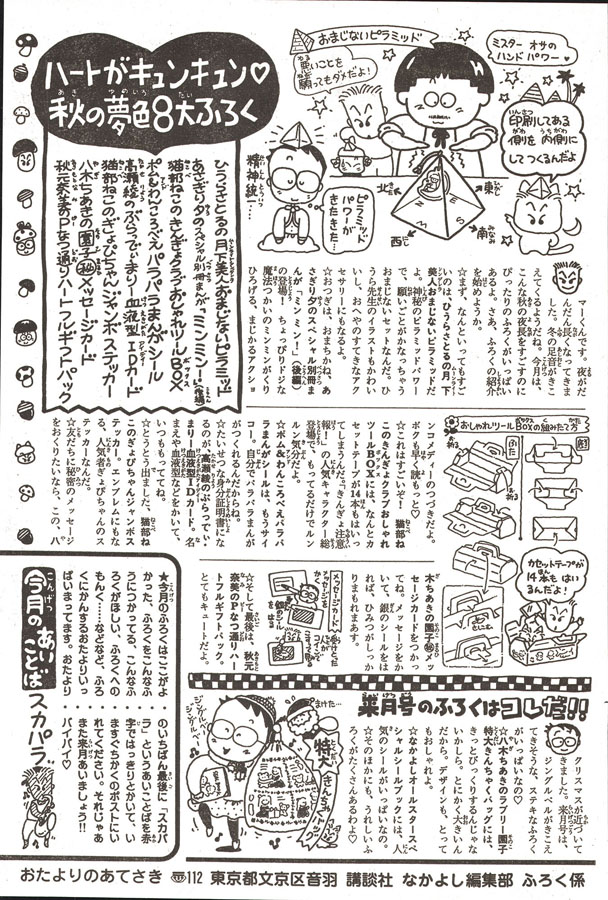 ハートがキュンキュン♡
秋の夢色8大ふろく
ひうらさとるの月下美人おまじないピラミッド
あさぎり夕のスペシャル別冊まんが「ミンミン!」（後編）
猫部ねこのきんぎょクラブおしゃれツールBOX
ポムやわんころべえパラパラまんがシール
高瀬綾のぷらてぃまり一血液型IDカード
猫部ねこのぎょぴちゃんジャンボステッカー
八木ちあきの園子㊙メッセージカード
秋元奈美のPなつ通りハートフルギフトパック
おまじないピラミッド
悪いことを
願ってもダメだよ!
ミスター オサの
ハンドパワー♥
印刷してある
側を内側に
してつくるんだよ
精神統一…
ピラミッド
パワーが
きたきた…
北
東
西
南
マーくんです。夜がだ
んだん長くなってきま
した。冬の足音がきこ
えてくるようだね。今月は、
こんな秋の夜長をすごすのに
ぴったりのふろくがいっぱい
あるよ。さあ、ふろくの紹介
を始めようか。
☆まず、なんといってもすご
いのは、ひうらさとるの月下
美人おまじないピラミッドだ
よ。神秘のピラミッドパワー
で、願いごとがかなっちゃう
おまじないセットだ。ひ
うら先生のイラストもかわい
いし、おへやのすてきなアク
セサリーにもなるよ。
☆おつぎは、おまちかね、あ
さぎり夕のスペシャル別冊ま
んが「ミンミン!」（後編）
の登場!! ちょっぴりドジな
魔法つかいのミンミンがくり
ひろげる、まじかるアクショ
ンコメディーのつづきだよ。
ボクも早く読もっと♡
☆これはすごいぞ! 猫部ね
このきんぎょクラブおしゃれ
ツールBOXには、なんとカ
セットテープが14本もはいっ
てしまうんだ。「きんぎょ注意
報!」の人気キャラクター総
登場で、もってるだけでルン
ルン気分だよ。
☆ポムやわんころべえパラパ
ラまんがシールは、もうサイ
コー。自分でパラパラまんが
がつくれるんだからね。
☆たいせつな身分証明書にな
るのが、高瀬綾のぷらってぃ
まり一血液型IDカード。名
まえや血液型などをかいて、
いつももっててね。
☆とうとう出ました、猫部ね
このぎょぴちゃんジャンボス
テッカー。エンブレムにもな
る、人気のぎょぴちゃんのス
テッカーなんだ。
☆友だちに秘密のメッセージ
をおくりたいなら、この、八
木ちあきの園子㊙メッ
セージカードをつかっ
てね。メッセージをか
いて、銀のシールをは
れば、ひみつがしっか
りまもれます。
☆そして最後は、秋元
奈美のPなつ通りハー
トフルギフトパック。
とてもキュートだよ。
おしゃれツールBOXの組みたて方
ふた
カセットテープが
14本も はい
るんだよ!
メッセージカード
メッセージを
かく
銀のシール
をはる
今月のあい
ことば
スカパラ
★今月のふろくはここがよ
かった、ふろくをこんなふ
うにつかってる、こんなふ
ろくがほしい、ふろくへの
もんく……などなど、ふろ
くにかんするおたよりいっ
ぱいまってます。おたより
のいちばん最後に「スカパ
ラ」というあいことばを赤
字ではっきりとかいて、い
ますぐちかくのポストにい
れてください。それじゃあ
また来月あいましょう!!
バイバイ♡
来月号のふろくはコレだ!!
ジングルベール
ジングルベール
まけた…
特大
きんちゃくバッグ
クリスマスが近づいて
きました。来月号は、
ジングルベルがきこえ
てきそうな、ステキなふろく
がいっぱいなの♡
☆八木ちあきのラブリー園子
特大きんちゃくバッグには、
きっとびっくりするんじゃな
いかしら。とにかく大きいん
だから。デザインも、とって
もおしゃれよ。
☆なかよしオールスタースペ
シャルシールブックには、人
気のシールがいっぱいなの。
☆そのほかにも、うれしいふ
ろくがたくさんあるわよ♡
おたよりのあてさき 〠112 東京都文京区音羽 講談社 なかよし編集部 ふろく係